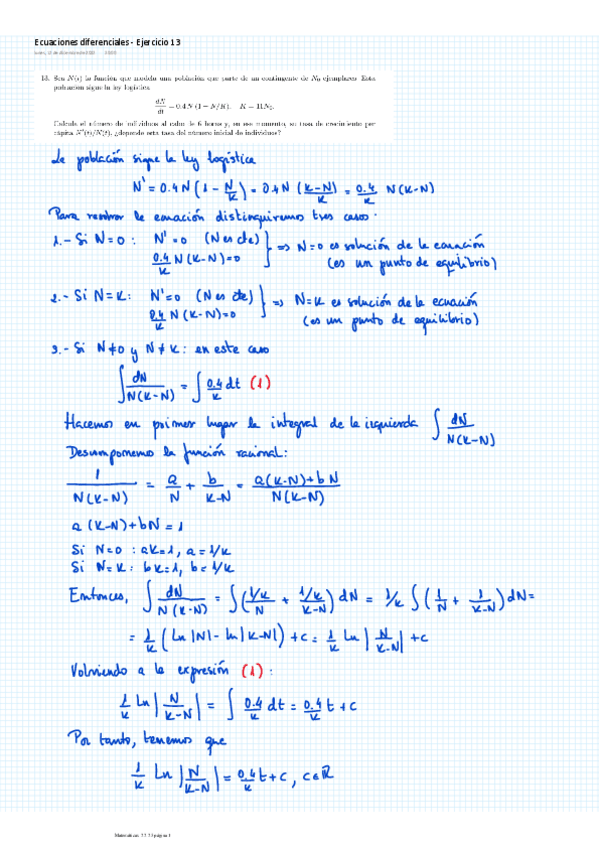 Ecuaciones diferenciales - Ejercicio 13
13. Sea N(t) la función que modela una población que parte de un contingente de N₀ ejemplares. Esta
población sigue la ley logística
dN/dt = 0.4 N (1 − N/K), K = 11N₀.
Calcula el número de individuos al cabo de 6 horas y, en ese momento, su tasa de crecimiento per
cápita N'(t)/N(t), ¿depende esta tasa del número inicial de individuos?
La población sigue la ley logística
N' = 0.4 N (1 - N/K) = 0.4 N (K-N)/K = 0.4/K N(K-N)
Para resolver la ecuación distinguiremos tres casos:
1.- Si N=0 : N'=0 (N es cte)
0.4/K N(K-N)=0 } => N=0 es solución de la ecuación
(es un punto de equilibrio)
2.- Si N=K: N'=0 (N es cte)
0.4/K N(K-N)=0 } => N=K es solución de la ecuación
(es un punto de equilibrio)
3.- Si N≠0 y N≠K: en este caso
∫ dN/N(K-N) = ∫ 0.4/K dt (1)
Hacemos en primer lugar la integral de la izquierda ∫ dN/N(K-N)
Descomponemos la función racional:
1/N(K-N) = a/N + b/K-N = a(K-N)+bN/N(K-N)
a (K-N)+bN = 1
Si N=0 : aK=1, a=1/K
Si N=K: bK=1, b=1/K
Entonces, ∫ dN/N(K-N) = ∫ (1/K/N + 1/K/K-N) dN = 1/K ∫ (1/N + 1/K-N) dN =
= 1/K (Ln|N| - ln|K-N|) + c = 1/K ln |N/K-N| + c
Volviendo a la expresión (1):
1/K Ln |N/K-N| = ∫ 0.4/K dt = 0.4/K t + c
Por tanto, tenemos que
1/K Ln |N/K-N| = 0.4/K t + c, c∈ℝ